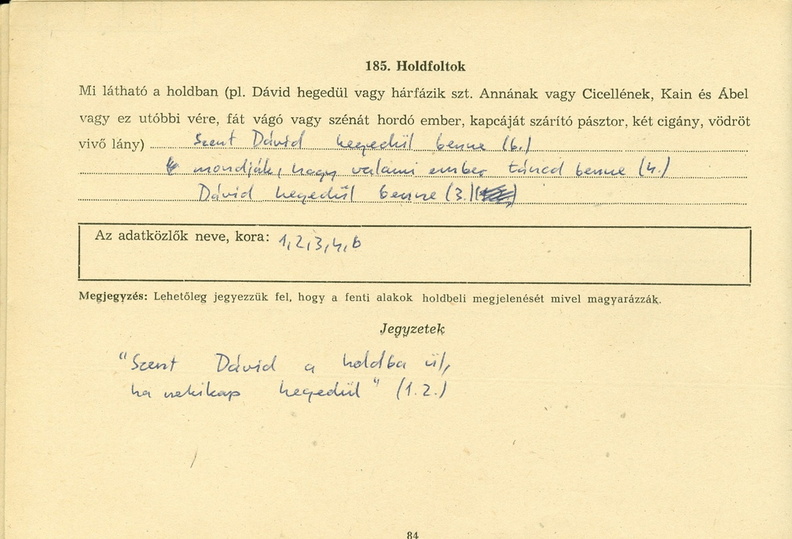 185. Holdfoltok
Mi látható a holdban (pl. Dávid hegedül vagy hárfázik szt. Annának vagy Cicellének, Kain és Ábel
vagy ez utóbbi vére, fát vágó vagy szénát hordó ember, kapcáját szárító pásztor, két cigány, vödröt
vivő lány) Szent Dávid hegedül benne (6.)
mondják, hogy valami ember táncol benne (4.)
Dávid hegedűl benne (3.)
Az adatközlők neve, kora: 1,2,3,4,6
Megjegyzés: Lehetőleg jegyezzük fel, hogy a fenti alakok holdbeli megjelenését mivel magyarázzák.
Jegyzetek
"Szent Dávid a holdba ül,
ha nekikap hegedül" (1.2.)
84